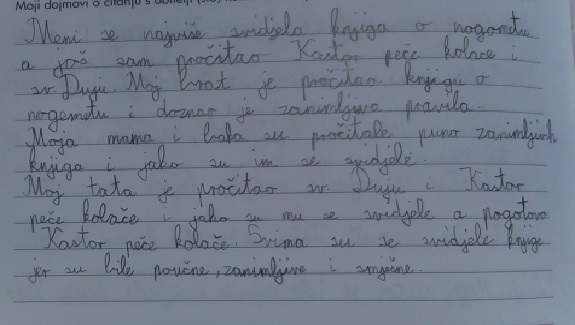 Moji dojmovi o čitanju s obitelji
Meni se najviše svidjela knjiga o nogometu
a još sam pročitao Kastor peče kolače i
sv. Duju. Moj brat je pročitao knjigu o
nogometu i doznao je zanimljiva pravila.
Moja mama i baka su pročitale puno zanimljivih
knjiga i jako su im se svidjele.
Moj tata je pročitao sv. Duju i Kastor
peče kolače i jako su mu se svidjele a pogotovo
Kastor peče kolače. Svima su se svidjele knjige
jer su bile poučne, zanimljive i smješne.